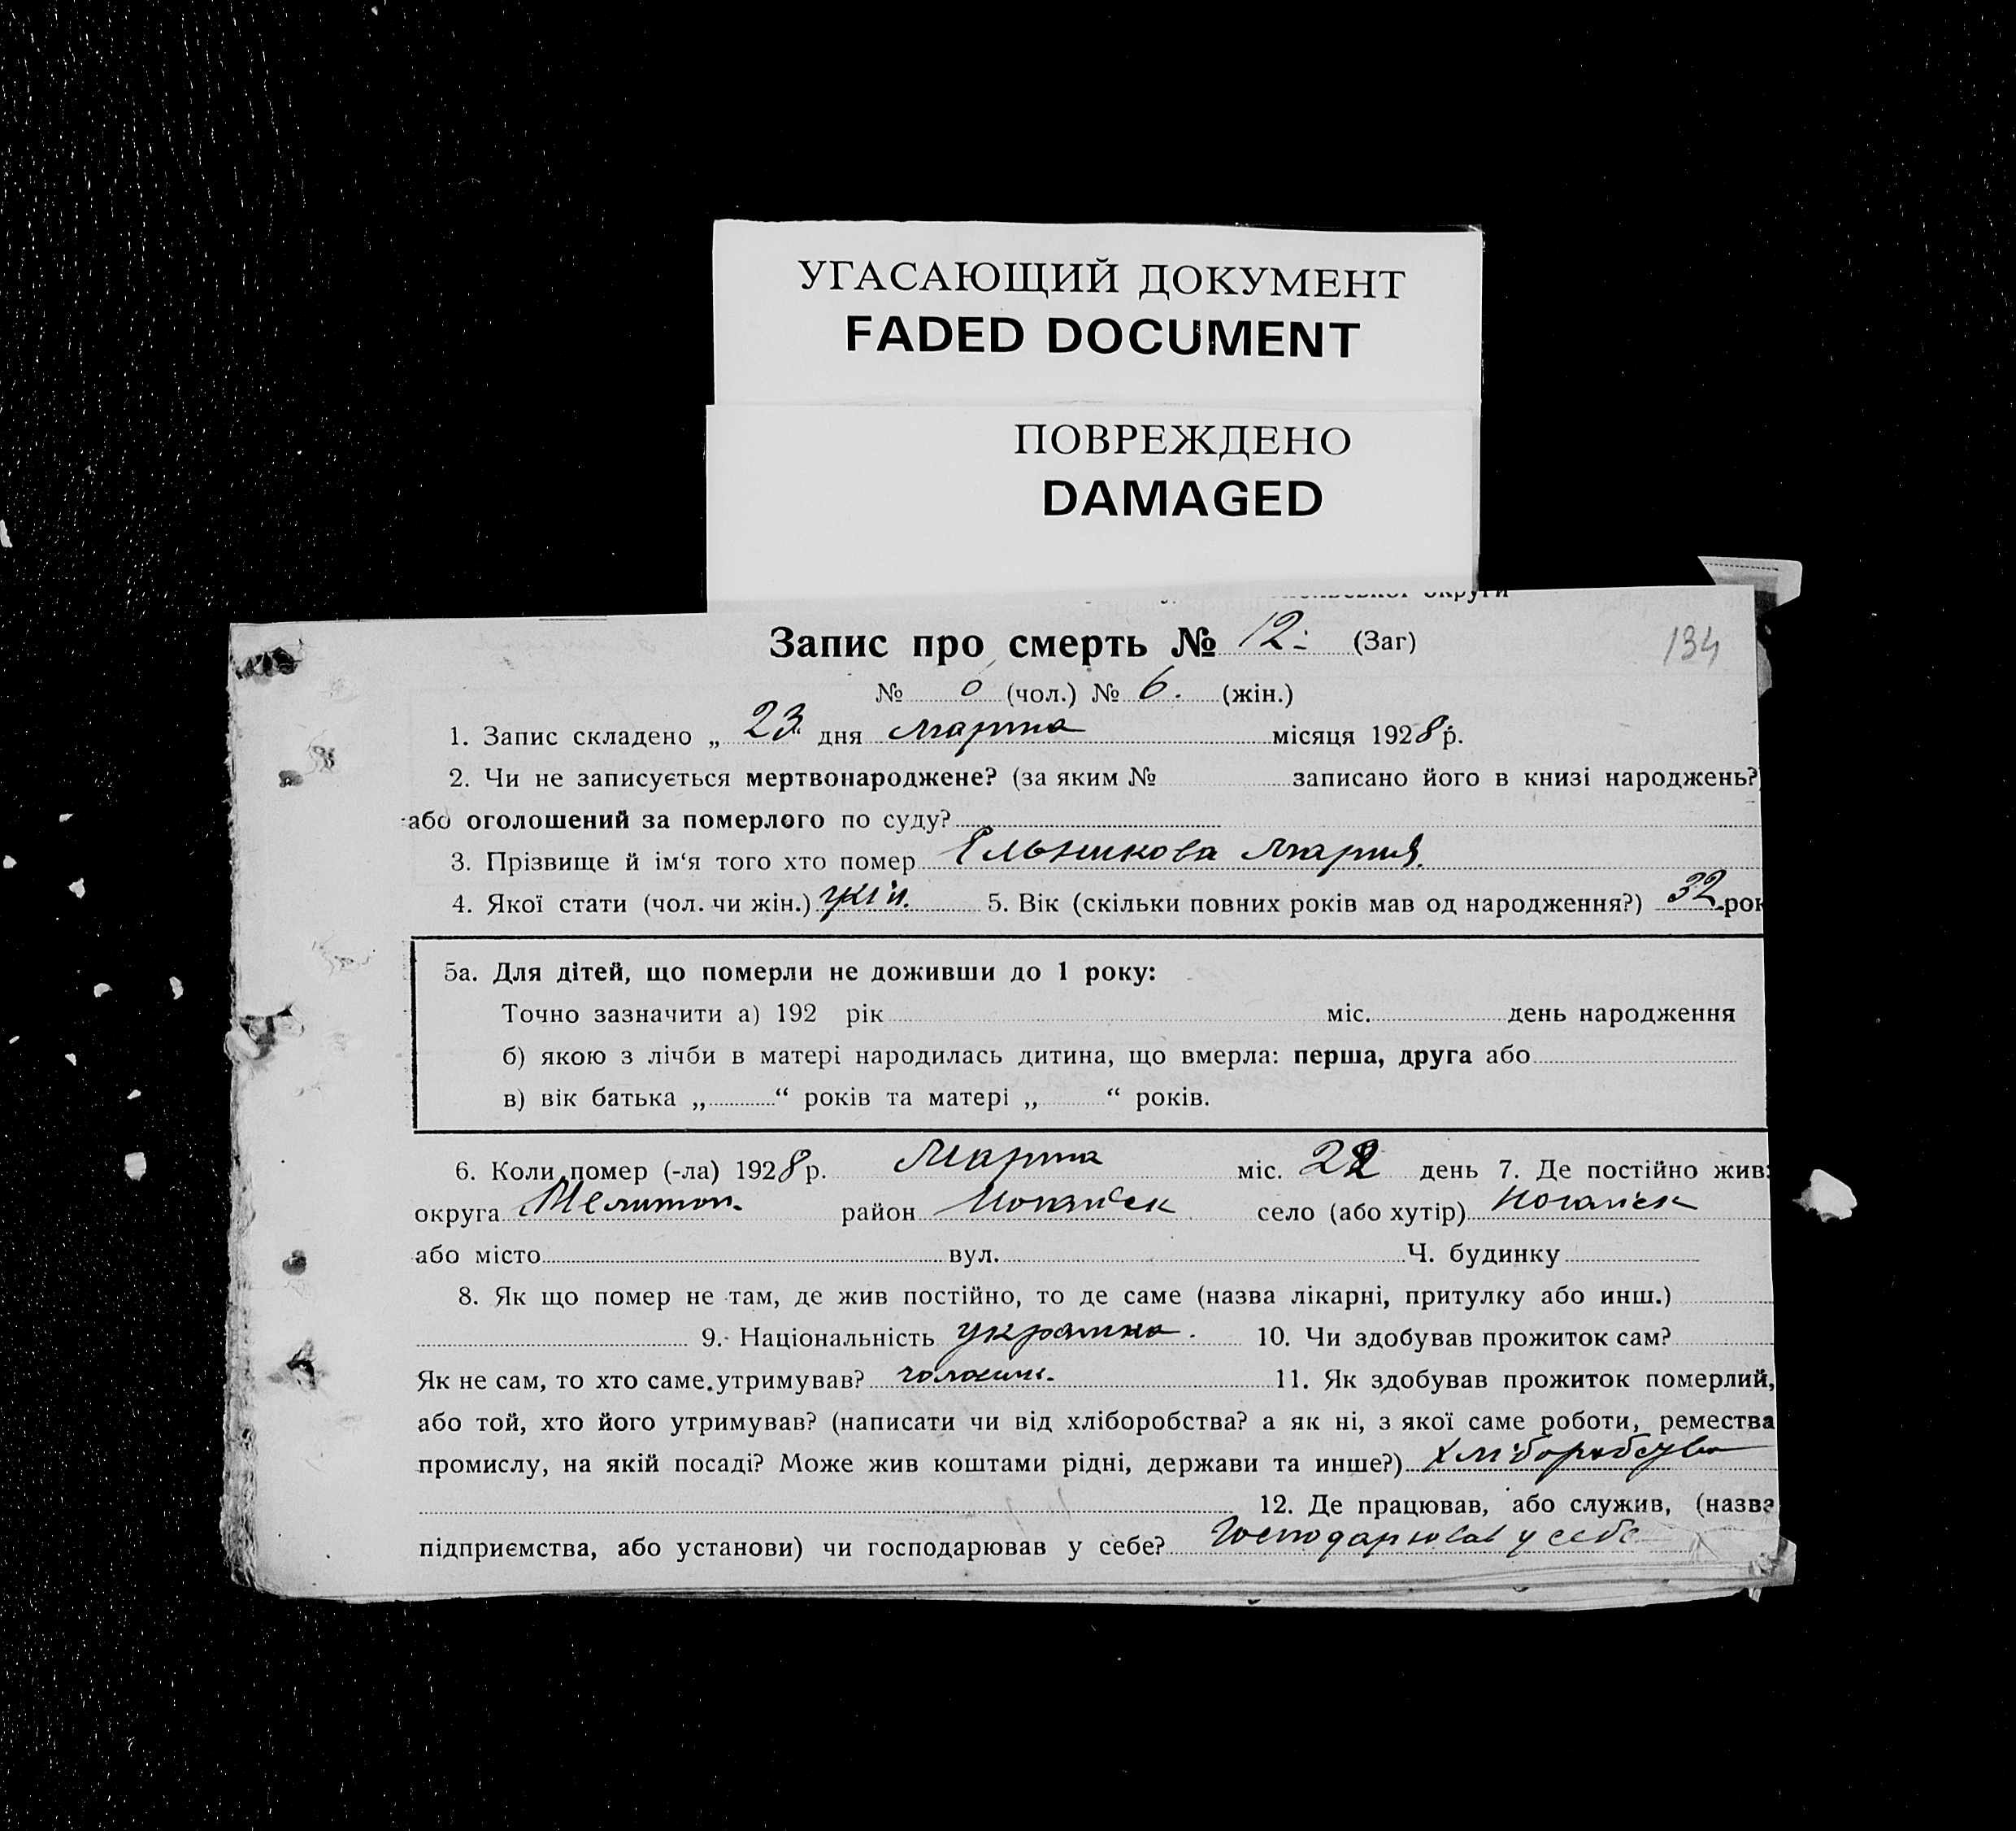 УГАСАЮЩИЙ ДОКУМЕНТ
FADED DOCUMENT
ПОВРЕЖДЕНО
DAMAGED
округи
Запис про смерть № 12 (Заг)
134
№ (чол.) № 6. (жін.)
1. Запис складено „ 23 дня марта місяця 1928 р.
2. Чи не записується мертвонароджене? (за яким № записано його в книзі народжень?
або оголошений за померлого по суду?
3. Прізвище й ім‘я того хто помер Ельникова Мария.
4. Якої стати (чол. чи жін.) жін. 5. Вік (скільки повних років мав од народження?) 32 рок
5а. Для дітей, що померли не доживши до 1 року:
Точно зазначити а) 192 рік міс. день народження
б) якою з лічби в матері народилась дитина, що вмерла: перша, друга або
в) вік батька „ “ років та матері „ “ років.
6. Коли помер (-ла) 1928 р. Марта міс. день 7. Де постійно жив:
округа Мелитоп. район Ногайськ село (або хутір) Ногайськ
або місто вул. Ч. будинку
8. Як що помер не там, де жив постійно, то де саме (назва лікарні, притулку або инш.)
9. Національність українка. 10. Чи здобував прожиток сам?
Як не сам, то хто саме утримував? 11. Як здобував прожиток померлий,
або той, хто його утримував? (написати чи від хліборобства? а як ні, з якої саме роботи, ремества
промислу, на якій посаді? Може жив коштами рідні, держави та инше?) хліборобство
12. Де працював, або служив, (назва
підприємства, або установи) чи господарював у себе? Господарював у себе